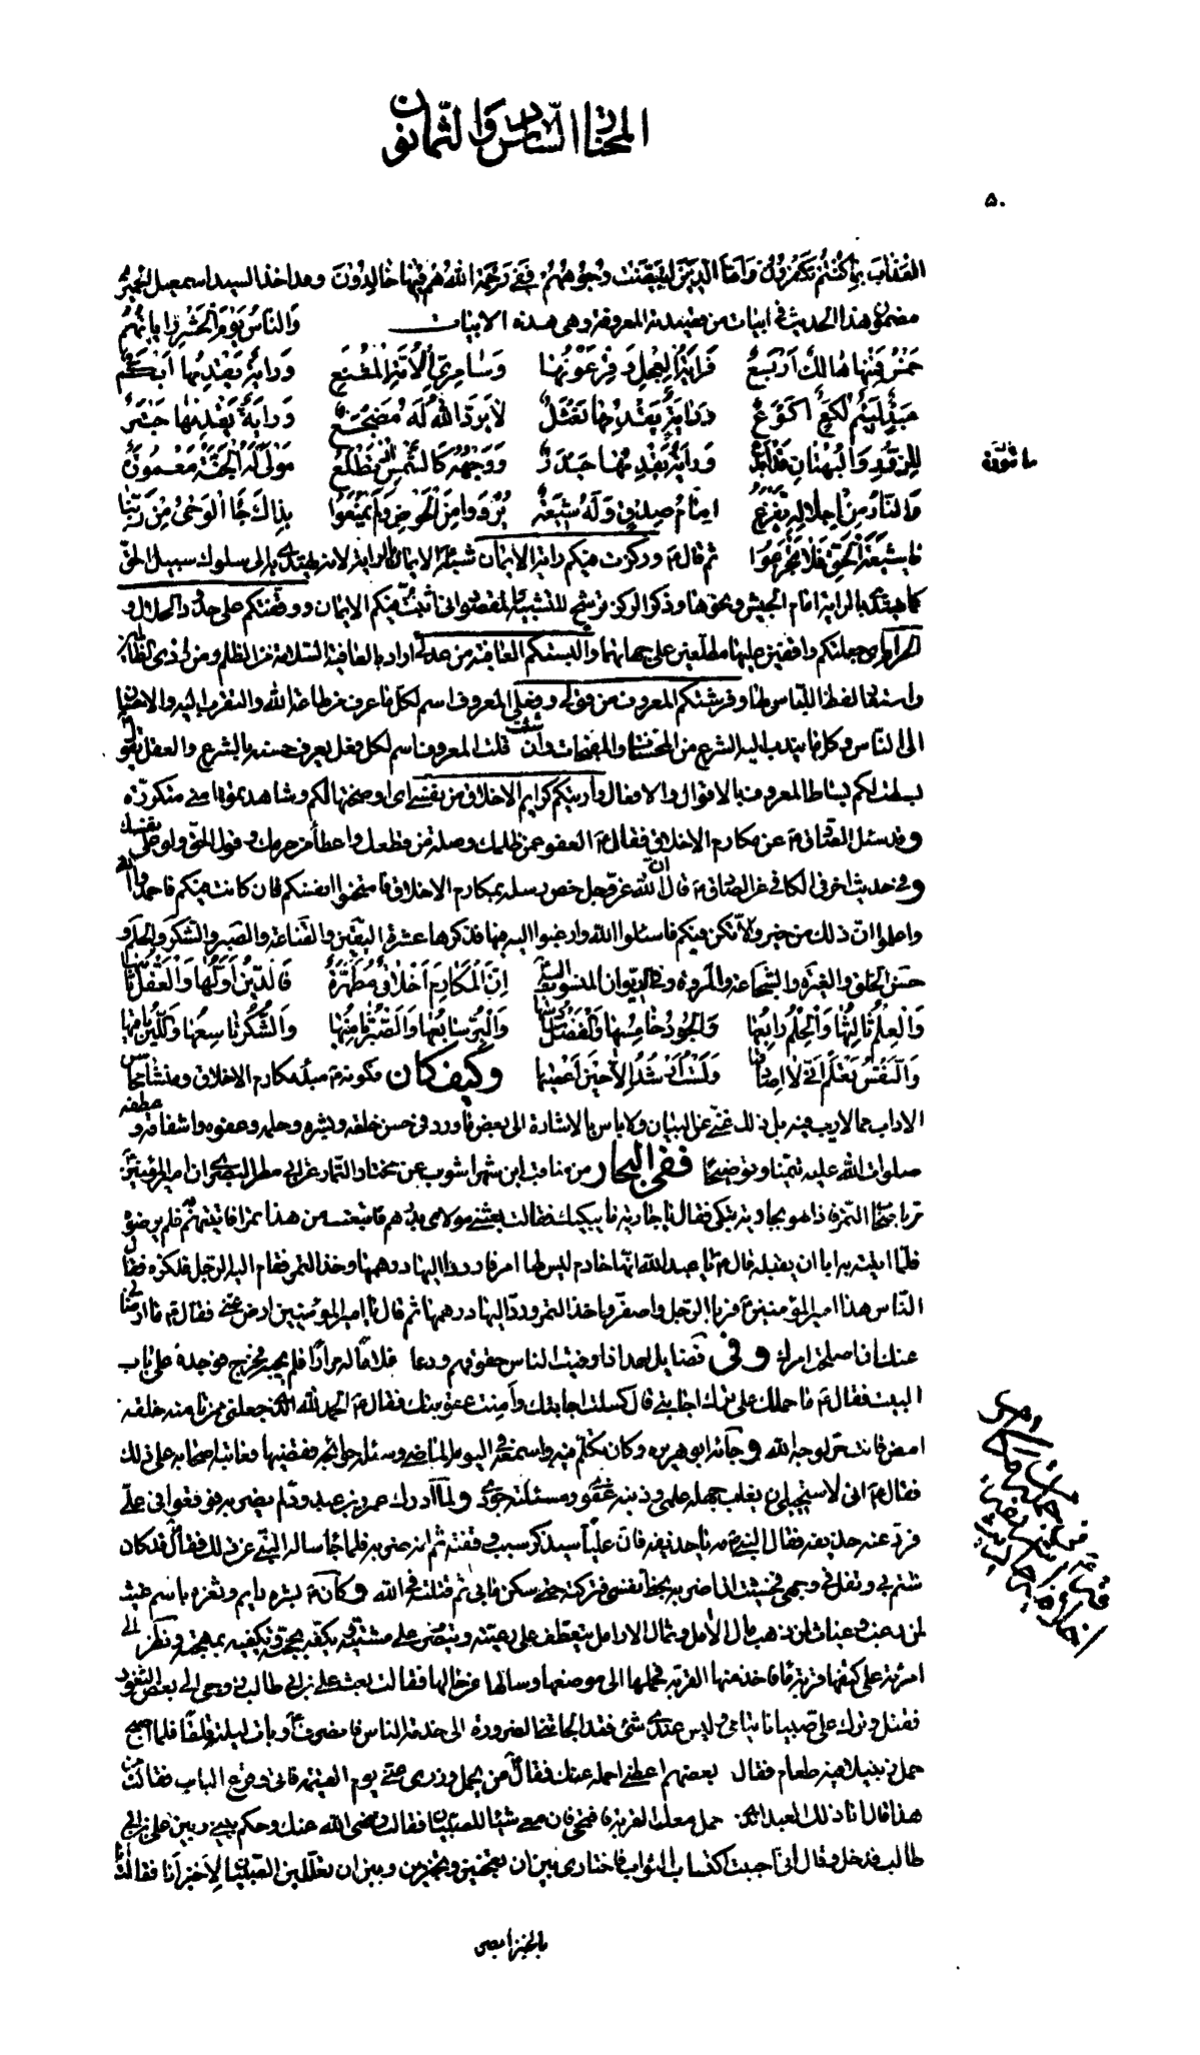 المختار السادس والثمانون
۵۰
العذاب بما كنتم تكفرون وأما الذين ابيضت وجوههم ففي رحمة الله هم فيها خالدون وقد أخذ السيد اسمعيل الحميري
مضمون هذا الحديث في أبيات من قصيدته المعروفة وهى هذه الابيات والناس يوم الحشر راياتهم
خمس فمنها هالك أربع فراية العجل وفرعونها وسامرى الامة المفنع وراية يقدمها أبكم
عبد لئيم لكع أكوع وراية يقدمها نعثل لا برد الله له مضجع وراية يقدمها حبتر
للزور والبهتان قد وراية يقدمها حيدر ووجهه كالشمس إذ تطلع مولى له الجنة مأمورة
والنار من اجلاله تفزع امام صدق وله شيعة يرووا من الحوض ولم يمنعوا بذاك جاء الوحى من ربنا
يا شيعة الحق فلا تجزعوا ثم قال م وركزت فيكم راية الايمان شبه الايمان بالراية لانه يهتدى به إلى سلوك سبيل الحق
كما يهتدى بالراية امام الجيش ونحوها وذكر الركز ترشيح للتشبيه المقصود انى أثبت فيكم الايمان ووقفتكم على حدود الحلال و
الحرام اى جعلتكم واقفين عليها مطلعين على جهاتها والبستكم العافية من عدلى اراد بالعافية السلامة من الظلم ومن اذى الظالمين
واستعار لفظ اللباس لها وفرشتكم المعروف من قولى وفعلى المعروف اسم لكل ما عرف من طاعة الله والتقرب اليه والاحسان
الى الناس وكل ما يندب اليه الشرع من المحسنات والمقبحات وان شئت قلت المعروف اسم لكل فعل يعرف حسنه بالشرع والعقل
بسطت لكم بساط المعروف بالاقوال والافعال وأريتكم كرايم الاخلاق من نفسى اى اوضحتها لكم وشاهدتموها منى متكررة
وقد سئل الصادق م عن مكارم الاخلاق فقال م العفو عمن ظلمك وصلة من قطعك واعطاء من حرمك وقول الحق ولو على نفسك
وفى حديث اخر فى الكافى عن الصادق م قال ان الله عز وجل خص رسله بمكارم الاخلاق فامتحنوا انفسكم فان كانت فيكم فاحمدوا الله
واعلموا ان ذلك من خير وان لا تكن فيكم فاسئلوا الله وارغبوا اليه فيها فذكرها عشرة اليقين والقناعة والصبر والشكر والحلم و
حسن الخلق والغيرة والشجاعة والمروة وفى الديوان المنسوب اليه ان المكارم أخلاق مطهرة فالدين أولها والعقل ثانيها
والعلم ثالثها والحلم رابعها والجود خامسها والفضل ساديها والبر سابعها والصبر ثامنها والشكر تاسعها واللين باقيها
والنفس تعلم أنى لا اصادقها ولست أرشد إلا حين أعصيها وكيف كان فكونه م مبدء مكارم الاخلاق ومنشاء محاسن
الاداب مما لا ريب فيه بل ذلك غنى عن البيان ولا باس بالاشارة الى بعض ما ورد فى حسن خلقه وبشره وحلمه وعفوه واشفاقه وعطفه
صلوات الله عليه تيمنا وتوضيحا ففى البحار من مناقب ابن شهراشوب عن مختار التمار عن أبى مطر البصرى ان امير المؤمنين
مر باصحاب التمر فاذا هو بجارية تبكى فقال يا جارية ما يبكيك فقالت بعثنى مولاى بدرهم فابتعت من هذا تمرا فاتيتهم به فلم يرضوه
فلما اتيته به ابى ان يقبله قال م يا عبد الله انها خادم ليس لها امر فاردد اليها درهمها وخذ التمر فقام اليه الرجل فلكزه فقال
الناس هذا امير المؤمنين م فربا الرجل واصفر واخذ التمر ورد اليها درهمها ثم قال يا امير المؤمنين ارض عنى فقال م ما ارضانى
عنك ان اصلحت امرك وفى فضايل احمد اذا وفيت الناس حقوقهم ودعا غلاما له مرارا فلم يجبه فخرج فوجده على باب
البيت فقال م ما حملك على ترك اجابتى قال كسلت عن اجابتك وامنت عقوبتك فقال م الحمد لله الذى جعلنى ممن يامنه خلقه
امض فانت حر لوجه الله وجائه ابو هريرة وكان تكلم فيه واسمعه فى اليوم الماضى وسئله حوائجه فقضيها فعاتبه اصحابه على ذلك
فقال م انى لاستحيى ان يغلب جهله علمى وذنبه عفوى ومسئلته جودى ولما أدرك عمرو بن عبد ود لم يضربه فوقعوا فى على
فرد عنه حذيفة فقال النبى م مه يا حذيفة فان عليا سيذكر سبب وقفته ثم انه ضربه فلما جاء ساله النبى عن ذلك فقال قد كان
شتم امى وتفل فى وجهى فخشيت ان اضربه لحظ نفسى فتركته حتى سكن ما بى ثم قتلته فى الله وكان م بشره دايم وثغره باسم غيث
لمن رغب وغياث لمن ذهب مال الآمل وثمال الارامل يتعطف على رعيته ويتصرف على مشيته ويكفه بحجته ويكفيه بمهجته ونظر الى
امرئة على كتفها قربة ماء فاخذ منها القربة فحملها الى موضعها وسالها عن حالها فقالت بعث على بن ابى طالب زوجى الى بعض الثغور
فقتل وترك على صبيانا يتامى وليس عندى شئ فقد الجاتنى الضرورة الى خدمة الناس فانصرف وبات ليلته قلقا فلما اصبح
حمل زنبيلا فيه طعام فقال بعضهم اعطنى احمله عنك فقال من يحمل وزرى عنى يوم القيمة فاتى وقرع الباب فقالت من
هذا قال انا ذلك العبد الذى حمل معك القربة فافتحى فان معى شيئا للصبيان فقالت رضى الله عنك وحكم بينى وبين على بن ابى
طالب فدخل وقال انى احببت اكتساب الثواب فاختارى بين ان تعجنين وتخبزين وبين ان تعللين الصبيان لاخبز أنا فقالت انا
بالخبز أبصر